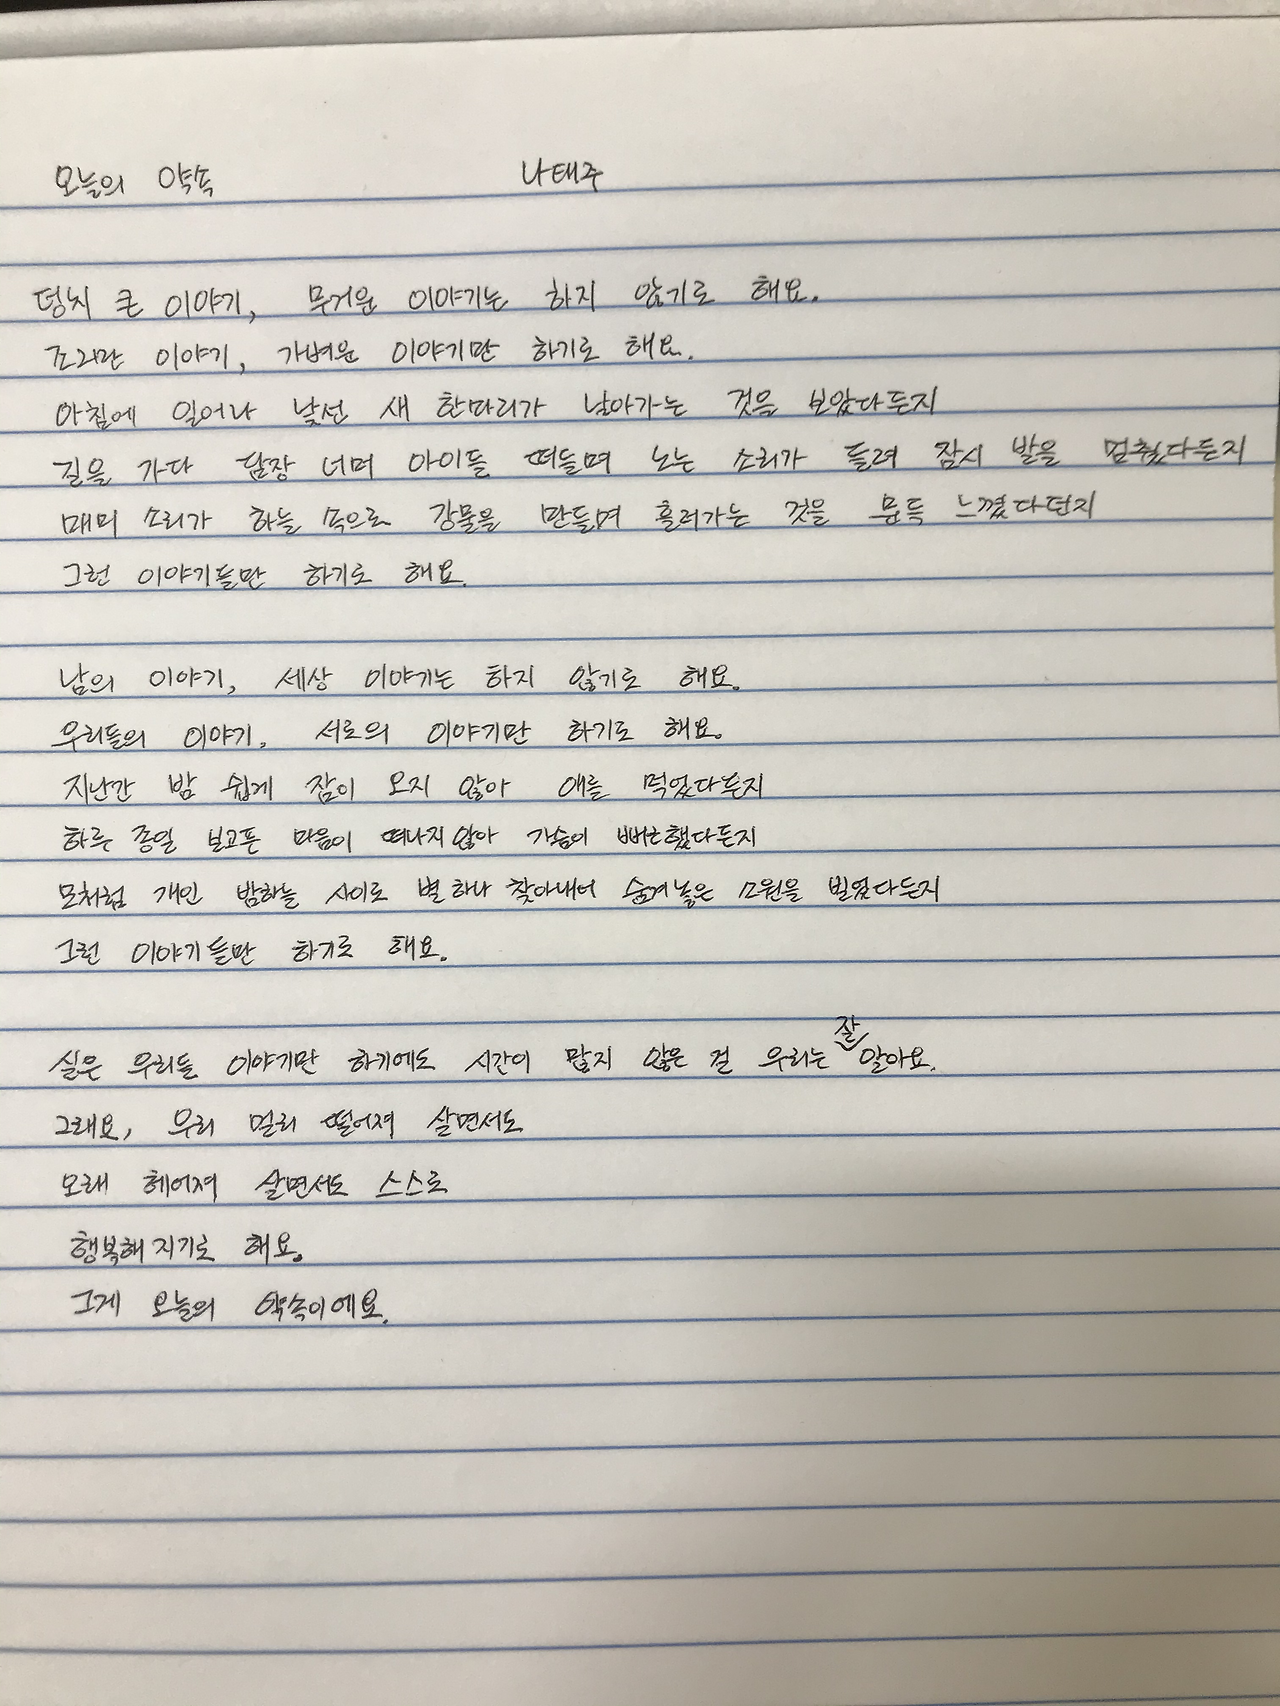 오늘의 약속 나태주
덩치 큰 이야기, 무거운 이야기는 하지 않기로 해요.
조그만 이야기, 가벼운 이야기만 하기로 해요.
아침에 일어나 낯선 새 한마리가 날아가는 것을 보았다든지
길을 가다 담장 너머 아이들 떠들며 노는 소리가 들려 잠시 발을 멈췄다든지
매미 소리가 하늘 속으로 강물을 만들며 흘러가는 것을 문득 느꼈다던지
그런 이야기들만 하기로 해요.
남의 이야기, 세상 이야기는 하지 않기로 해요.
우리들의 이야기, 서로의 이야기만 하기로 해요.
지난간 밤 쉽게 잠이 오지 않아 애를 먹었다든지
하루 종일 보고픈 마음이 떠나지 않아 가슴이 뻐근했다든지
모처럼 개인 밤하늘 사이로 별 하나 찾아내어 숨겨놓은 소원을 빌었다든지
그런 이야기들만 하기로 해요.
실은 우리들 이야기만 하기에도 시간이 많지 않은 걸 우리는 잘 알아요.
그래요, 우리 멀리 떨어져 살면서도
오래 헤어져 살면서도 스스로
행복해지기로 해요.
그게 오늘의 약속이에요.